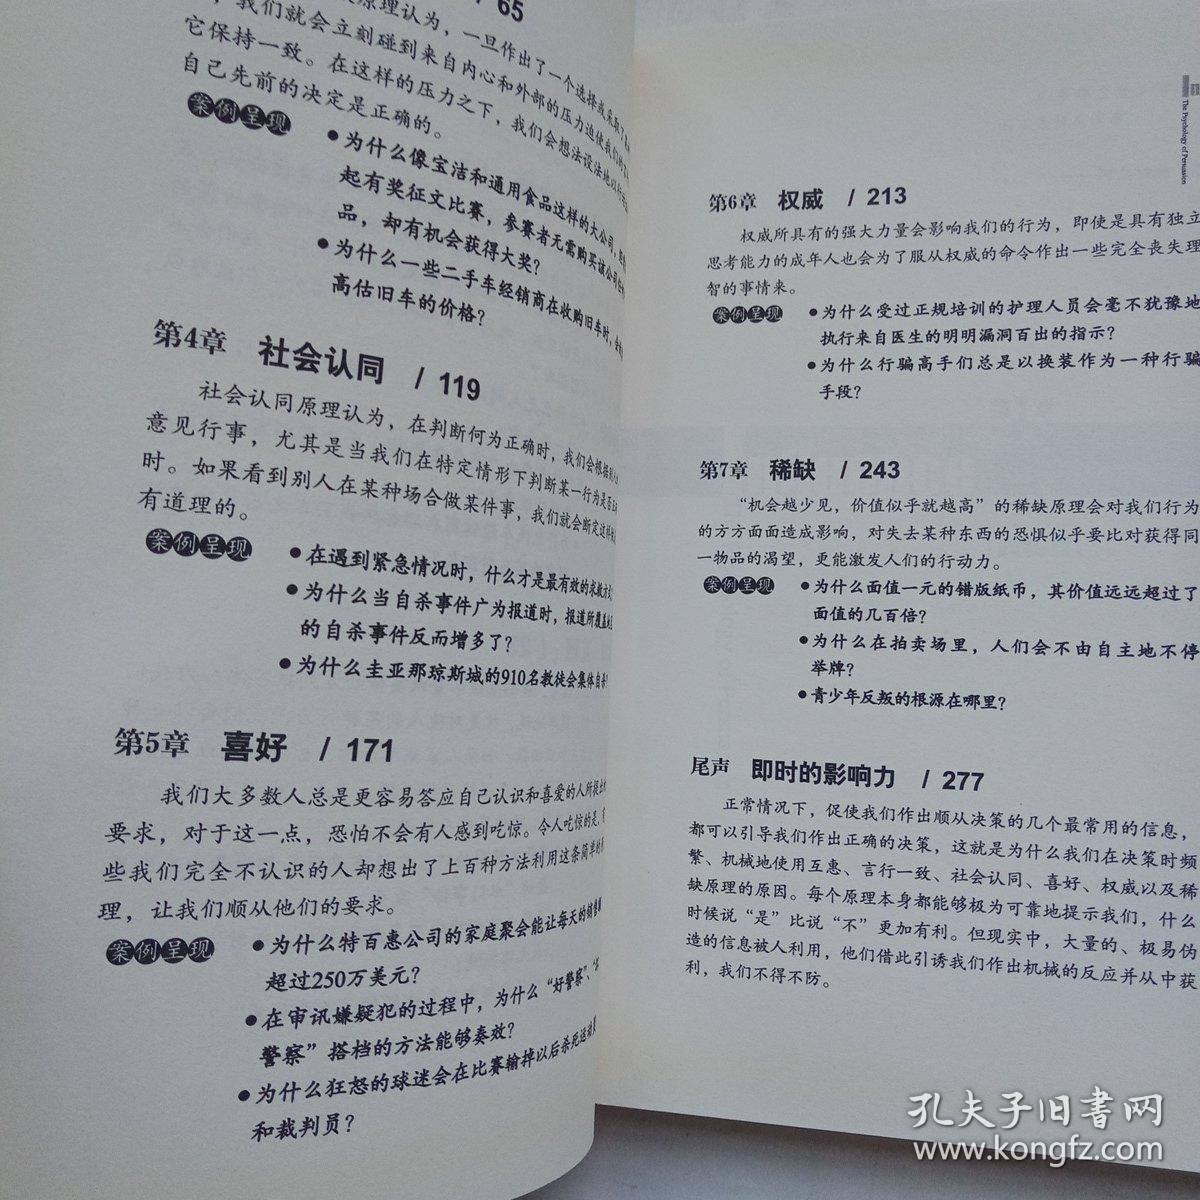 / 65
原理认为，一旦作出了一个选择或采取了
，我们就会立刻碰到来自内心和外部的压力迫使我们
它保持一致。在这样的压力之下，我们会想法设法地以行
自己先前的决定是正确的。
案例呈现
●为什么像宝洁和通用食品这样的大公司，
起有奖征文比赛，参赛者无需购买该公司
品，却有机会获得大奖？
●为什么一些二手车经销商在收购旧车时，
高估旧车的价格？
第4章 社会认同 / 119
社会认同原理认为，在判断何为正确时，我们会根据别人
意见行事，尤其是当我们在特定情形下判断某一行为是否
时。如果看到别人在某种场合做某件事，我们就会断定这样
有道理的。
案例呈现
●在遇到紧急情况时，什么才是最有效的求救方
●为什么当自杀事件广为报道时，报道所覆盖
的自杀事件反而增多了？
●为什么圭亚那琼斯城的910名教徒会集体自杀
第5章 喜好 / 171
我们大多数人总是更容易答应自己认识和喜爱的人所提出
要求，对于这一点，恐怕不会有人感到吃惊。令人吃惊的是，有
些我们完全不认识的人却想出了上百种方法利用这条简单的
理，让我们顺从他们的要求。
案例呈现
●为什么特百惠公司的家庭聚会能让每天的销售
超过250万美元？
●在审讯嫌疑犯的过程中，为什么“好警察”、“
警察”搭档的方法能够奏效？
●为什么狂怒的球迷会在比赛输掉以后杀死运动员
和裁判员？
The Psychology of Persuasion
第6章 权威 / 213
权威所具有的强大力量会影响我们的行为，即使是具有独立
思考能力的成年人也会为了服从权威的命令作出一些完全丧失理
智的事情来。
案例呈现
●为什么受过正规培训的护理人员会毫不犹豫地
执行来自医生的明明漏洞百出的指示？
●为什么行骗高手们总是以换装作为一种行骗
手段？
第7章 稀缺 / 243
“机会越少见，价值似乎就越高”的稀缺原理会对我们行为
的方方面面造成影响，对失去某种东西的恐惧似乎要比对获得同
一物品的渴望，更能激发人们的行动力。
案例呈现
●为什么面值一元的错版纸币，其价值远远超过了
面值的几百倍？
●为什么在拍卖场里，人们会不由自主地不停
举牌？
●青少年反叛的根源在哪里？
尾声 即时的影响力 / 277
正常情况下，促使我们作出顺从决策的几个最常用的信息，
都可以引导我们作出正确的决策，这就是为什么我们在决策时频
繁、机械地使用互惠、言行一致、社会认同、喜好、权威以及稀
缺原理的原因。每个原理本身都能够极为可靠地提示我们，什么
时候说“是”比说“不”更加有利。但现实中，大量的、极易伪
造的信息被人利用，他们借此引诱我们作出机械的反应并从中获
利，我们不得不防。
孔夫子旧书网
www.kongfz.com